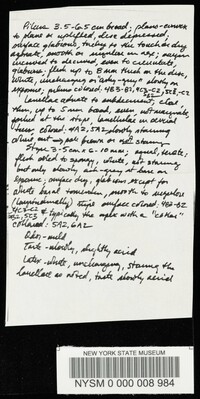 Pileus 3.5-6.5 cm broad, plano-convex
to plane or uplifted, disc depressed,
surface glabrous, tacky to the touch or dry
margin
incurved to decurved, even to crenulate,
glabrous. flesh up to 8 mm thick on the disc,
white, unchanging or only slowly
exposure; pileus colored: 4E3-
Lamellae adnate to subdecurrent, close
thin, up to 5 mm broad, even not marginate,
forked at the stipe, lamellulae in several
tiers, colored: 4A2, 5A2, slowly staining
brown or not staining
Stipe 3-5 cm x 6-10 mm; equal, terete;
flesh solid to spongy, white, not staining
but only slowly at base on
exposure; surface dry, glabrous except for
white basal tomentum, smooth to rugulose
(longitudinally) stipe surface colored: 4E2-B2
typically the apex with a "collar"
colored: 5A2, 6A2
Odor - mild
Taste - slowly, slightly acrid
Latex - white, unchanging, staining the
lamellae as noted, taste slowly acrid
NEW YORK STATE MUSEUM
NYSM 0 000 008 984